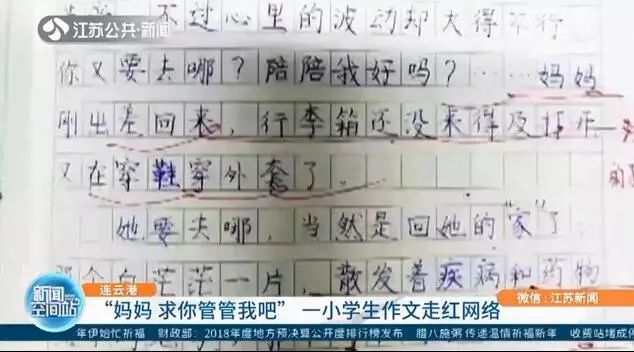 江苏公共·新闻
不过心里的波动却大得不行
你又要去哪？陪陪我好吗？……妈妈
刚出差回来，行李箱还没来得及打开
又在穿鞋穿外套了。
她要去哪，当然是回她的“家”了
那个白茫茫一片，散发着疾病和药物
连云港
微信：江苏新闻
新闻空间站
“妈妈 求你管管我吧” 一小学生作文走红网络
年伊始忙祈福 财政部：2018年度地方预决算公开度排行榜发布 腊八施粥传递温情祈福新年 收费站堵成停